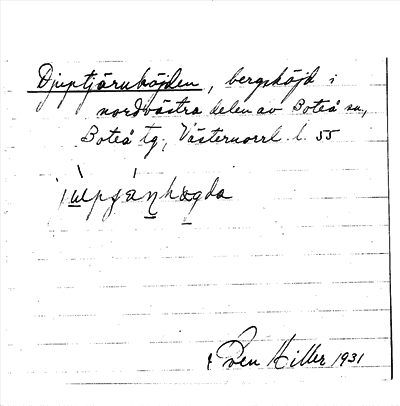 Djuptjärnhöjden, bergshöjd i
nordvästra delen av Boteå sn,
Boteå tg, Västernorrl. l. 55
Sven Hiller 1931